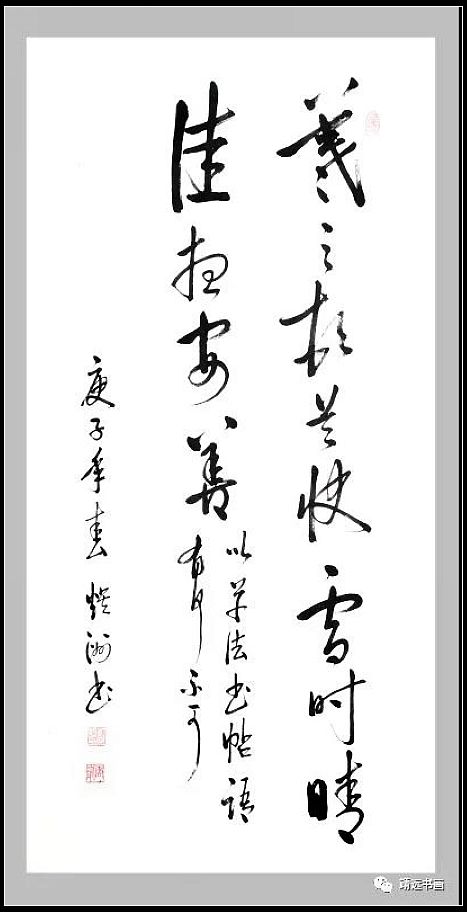 羲之顿首快雪时晴
佳想安善
以草法书帖语
有何不可
庚子年春 洲书
靖远书画